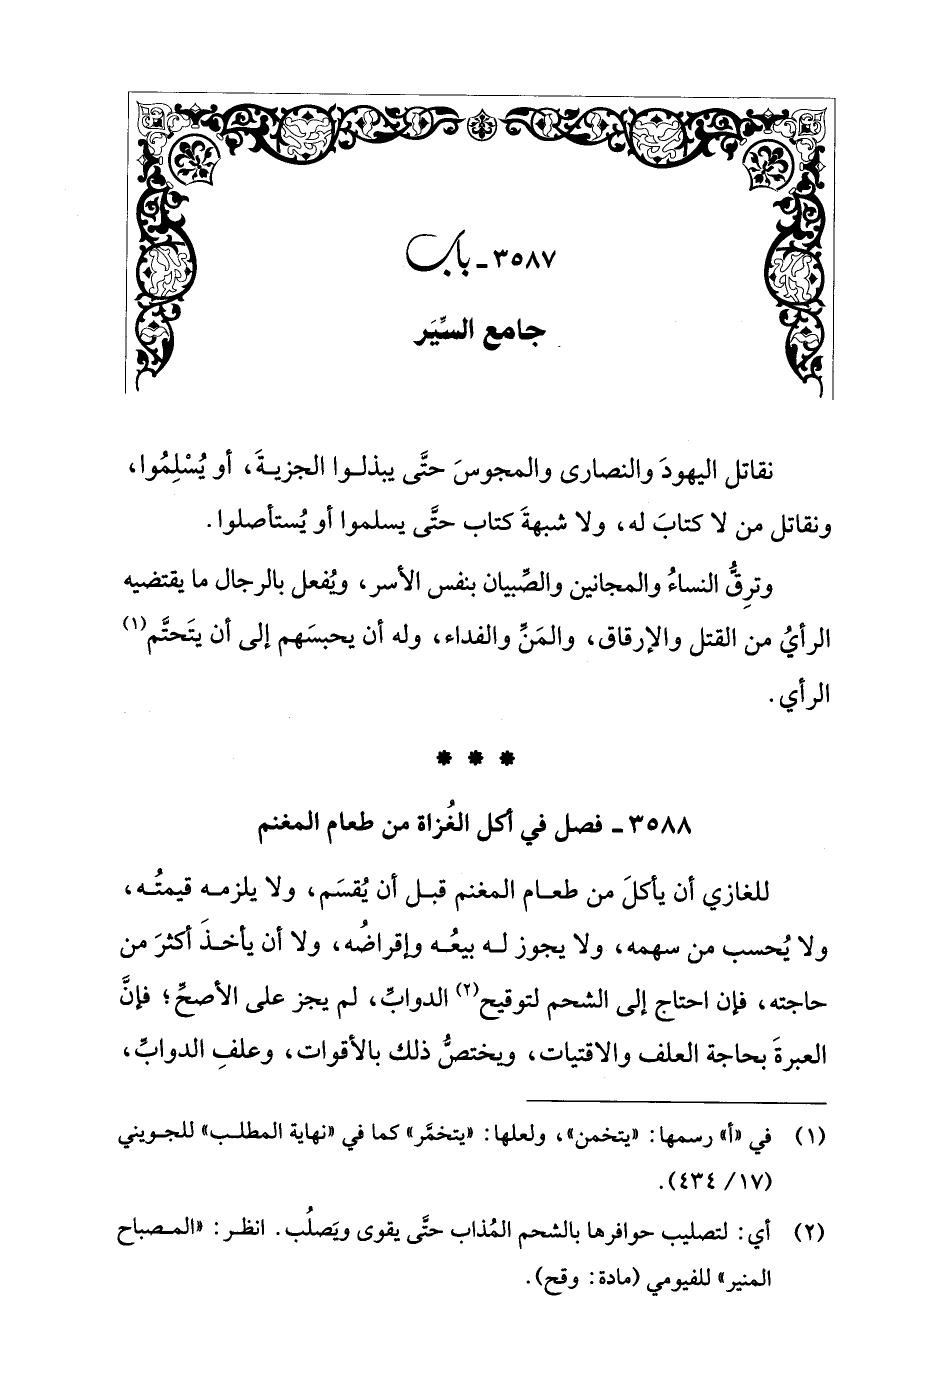 ٣٥٨٧ - باب
جامع السِّيَر
نقاتل اليهودَ والنصارى والمجوسَ حتَّى يبذلوا الجزيةَ، أو يُسْلِمُوا،
ونقاتل من لا كتابَ له، ولا شبهةَ كتاب حتَّى يسلموا أو يُستأصلوا.
وترِقُّ النساءُ والمجانين والصِّبيان بنفس الأسر، ويُفعل بالرجال ما يقتضيه
الرأيُ من القتل والإرقاق، والمَنِّ والفداء، وله أن يحبسَهم إلى أن يتَحتَّم(١)
الرأي.
* * *
٣٥٨٨ - فصل في أكل الغُزاة من طعام المغنم
للغازي أن يأكلَ من طعام المغنم قبل أن يُقسَم، ولا يلزمه قيمتُه،
ولا يُحسب من سهمه، ولا يجوز له بيعُه وإقراضُه، ولا أن يأخذَ أكثرَ من
حاجته، فإن احتاج إلى الشحم لتوقيح(٢) الدوابِّ، لم يجز على الأصحِّ؛ فإنَّ
العبرةَ بحاجة العلف والاقتيات، ويختصُّ ذلك بالأقوات، وعلفِ الدوابِّ،
(١) في «أ» رسمها: «يتخمن»، ولعلها: «يتخمَّر» كما في «نهاية المطلب» للجويني
(١٧/ ٤٣٤).
(٢) أي: لتصليب حوافرها بالشحم المُذاب حتَّى يقوى ويَصلُب. انظر: «المصباح
المنير» للفيومي (مادة: وقح).